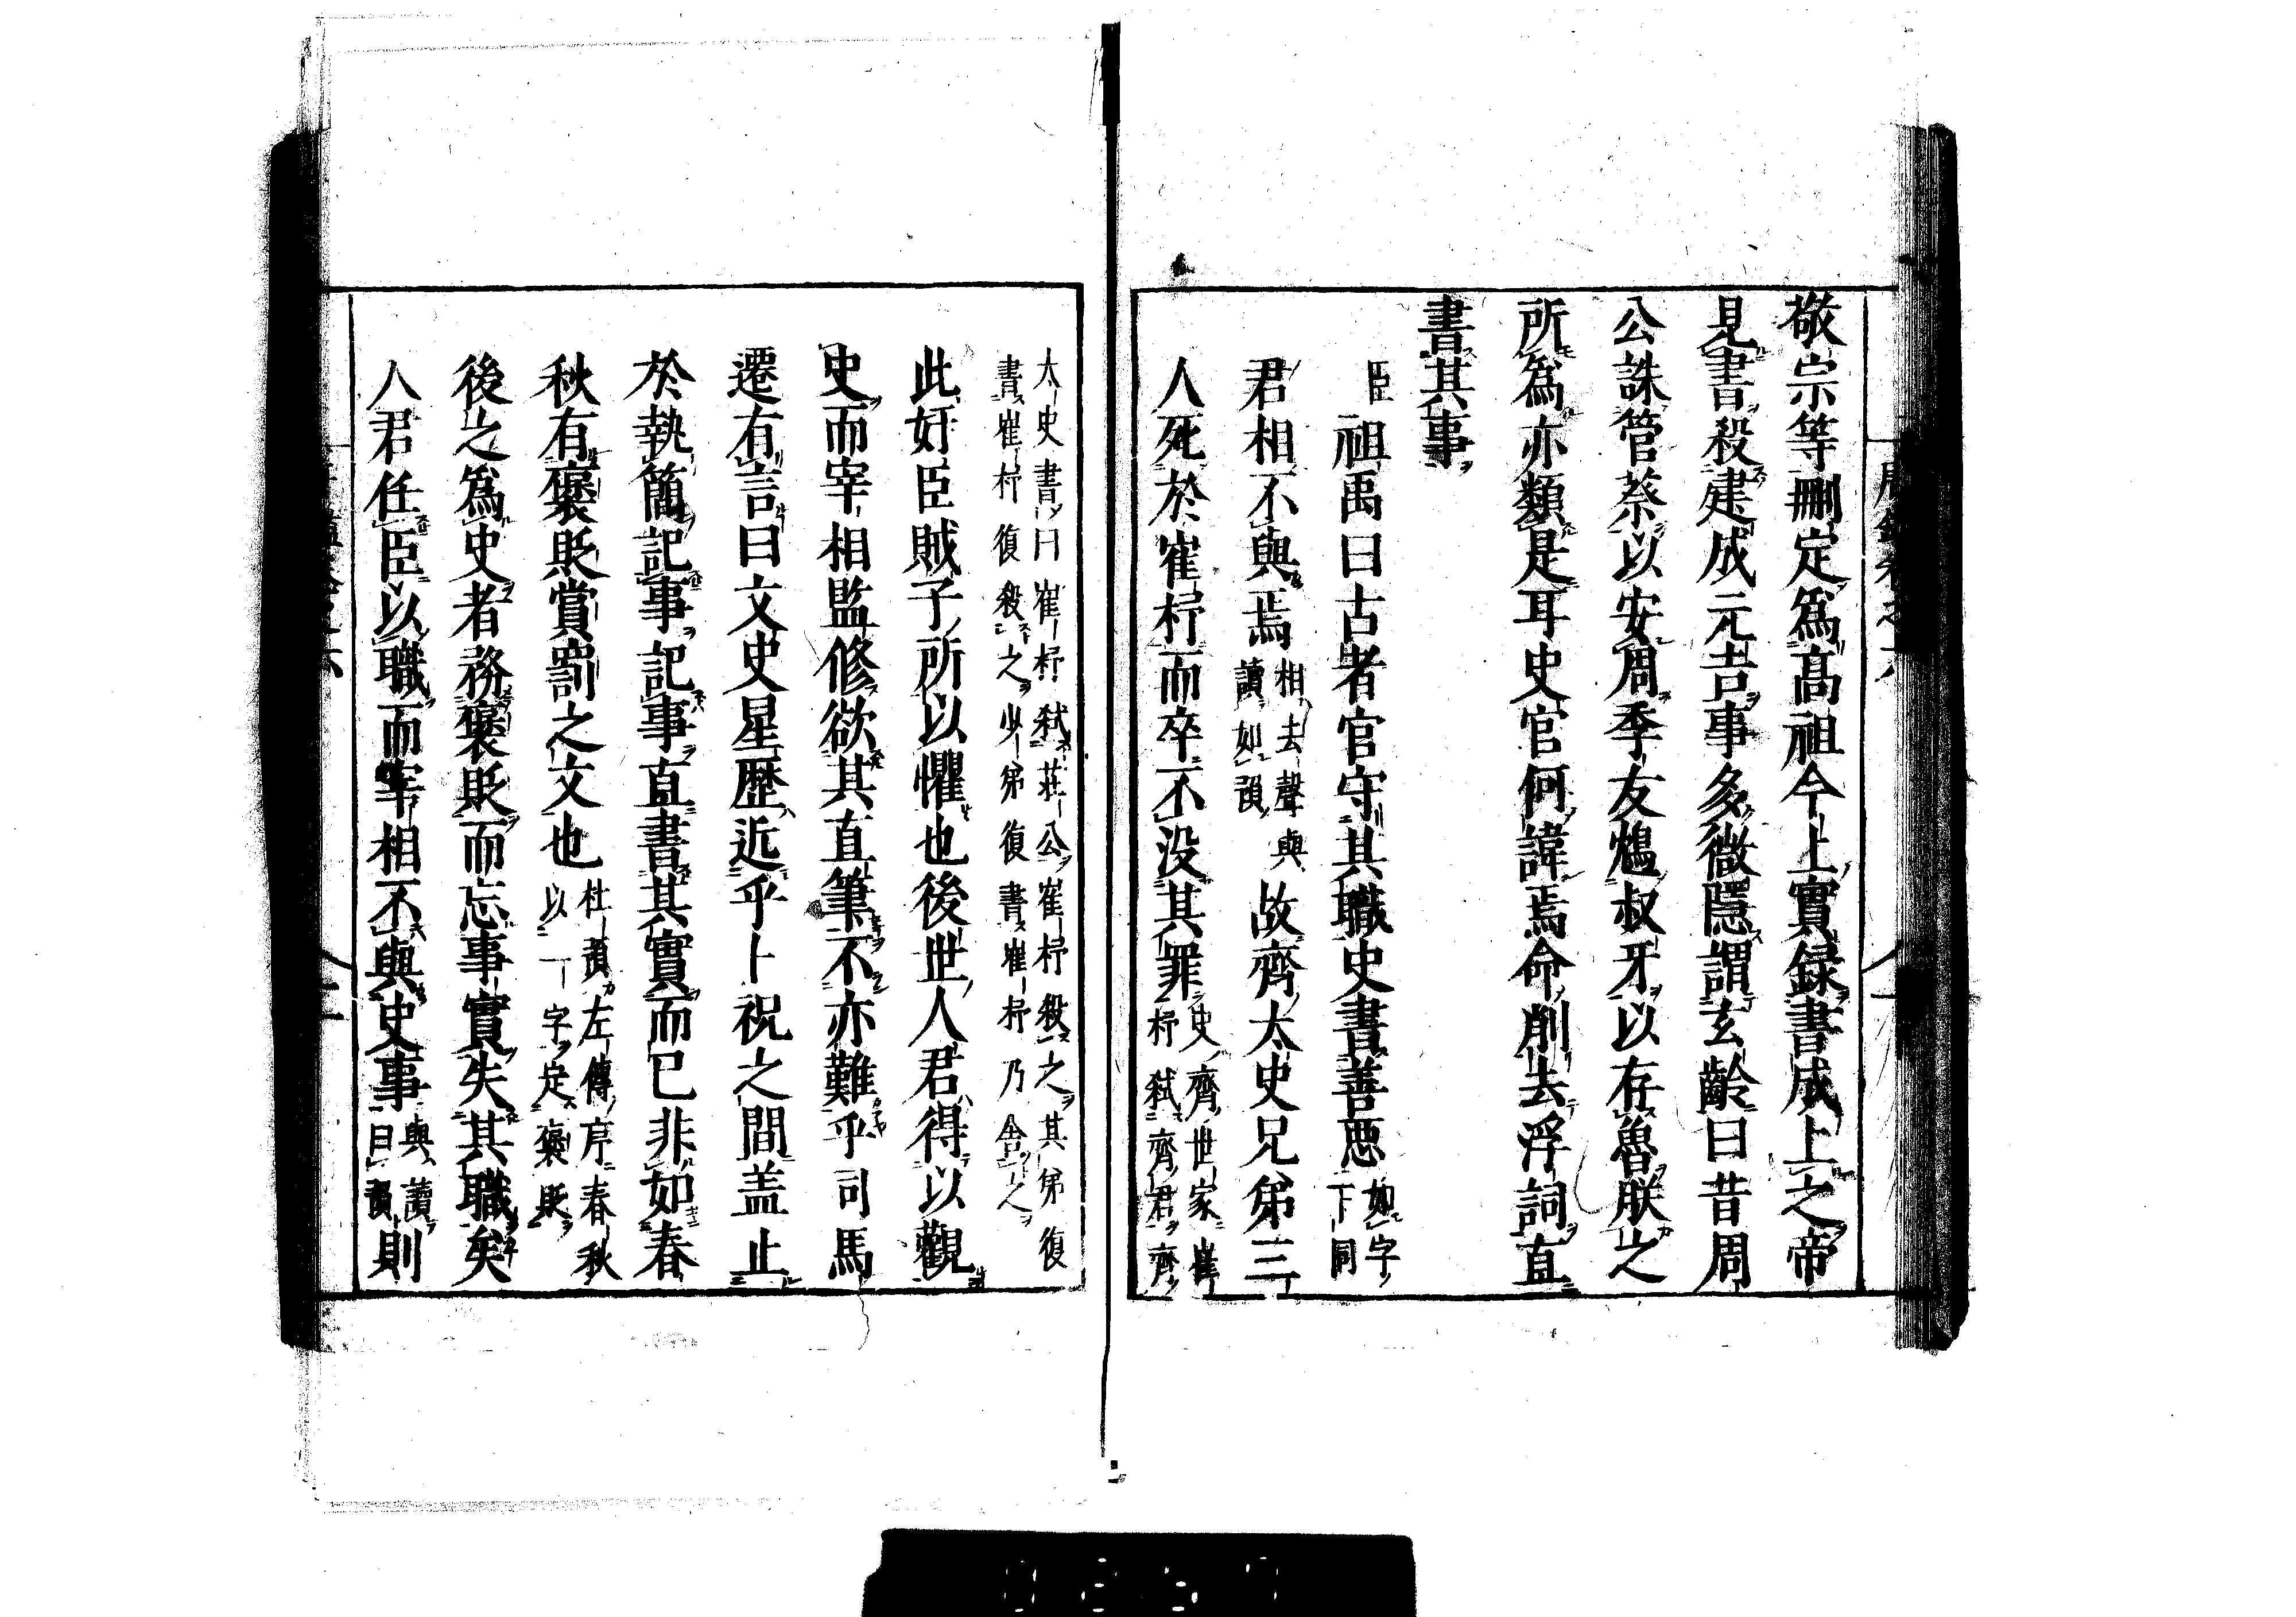 敬宗等刪定爲髙祖今上實録書成上之帝
見書殺建成元吉事多微隱謂玄齡曰昔周
公誅管蔡以安周季友鴆叔牙以存魯朕之
所爲亦類是耳史官何諱焉命削去浮詞直
書其事
臣祖禹曰古者官守其職史書善惡如字下同
君相不與焉相去聲與讀如預故齊太史兄弟三
人死於崔杼而卒不没其罪史齊世家崔杼弑齊君齊
太史書曰崔杼弑莊公崔杼殺之其弟復書崔杼復殺之少弟復書崔杼乃舎之
此奸臣賊子所以懼也後世人君得以觀
史而宰相監修欲其直筆不亦難乎司馬
遷有言曰文史星歴近乎卜祝之間盖止
於執簡記事記事直書其實而已非如春
秋有襃貶賞罰之文也杜預左傳序春秋以一字定襃貶
後之爲史者務襃貶而忘事實失其職矣
人君任臣以職而宰相不與史事與讀曰預則